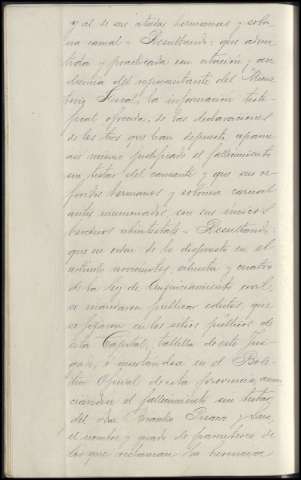 y al de sus citados hermanos y sobri-
na carnal = Resultando: que admi-
tida y practicada con citación y au-
diencia del representante del Minis-
terio Fiscal, la información testi-
fical ofrecida, de las declaraciones
de testigos que han depuesto aparece
así mismo justificado el fallecimiento
sin testar del causante y que sus re-
feridos hermanos y sobrina carnal
antes mencionados son sus únicos
herederos abintestato = Resultando:
que en orden de lo dispuesto en el
artículo novecientos ochenta y cuatro
de la ley de Enjuiciamiento civil,
se mandaron publicar edictos, que
se fijaron en los sitios públicos de
esta Capital, tablilla de este Juz-
gado, é insertándose en el Bole-
tín Oficial de esta provincia, anun-
ciando el fallecimiento sin testar
del
el nombre y grado de parentesco de
los que reclaman la herencia